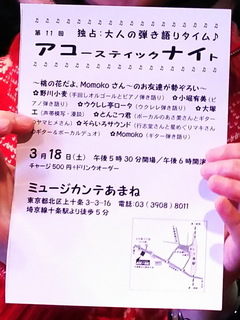 第11回 独占：大人の弾き語りタイム♪
アコースティックナイト
～桃の花だよ、Momokoさん～のお友達が勢ぞろい～
✿野川小麦(手回しオルゴールとピアノ弾き語り) ✿小堀有美(ピ
アノ弾き語り) ✿ウクレレ亭ローク(ウクレレ弾き語り) ✿大塚
工(声帯模写・漫談) ✿とんこつ君(ボーカルのあき菜さんとギター
ヤヤヒメさん) ✿そらいろサウンド(行志堂さんと星めぐりマキさんの
ギター&ボーカルデュオ) ✿Momoko(ギター弾き語り)
3月18日(土) 午後5時30分開場／午後6時開演
チャージ500円+ドリンクオーダー
ミュージカンテあまね
東京都北区上十条3-3-16 電話:03(3908)8011
埼京線十条駅より徒歩5分